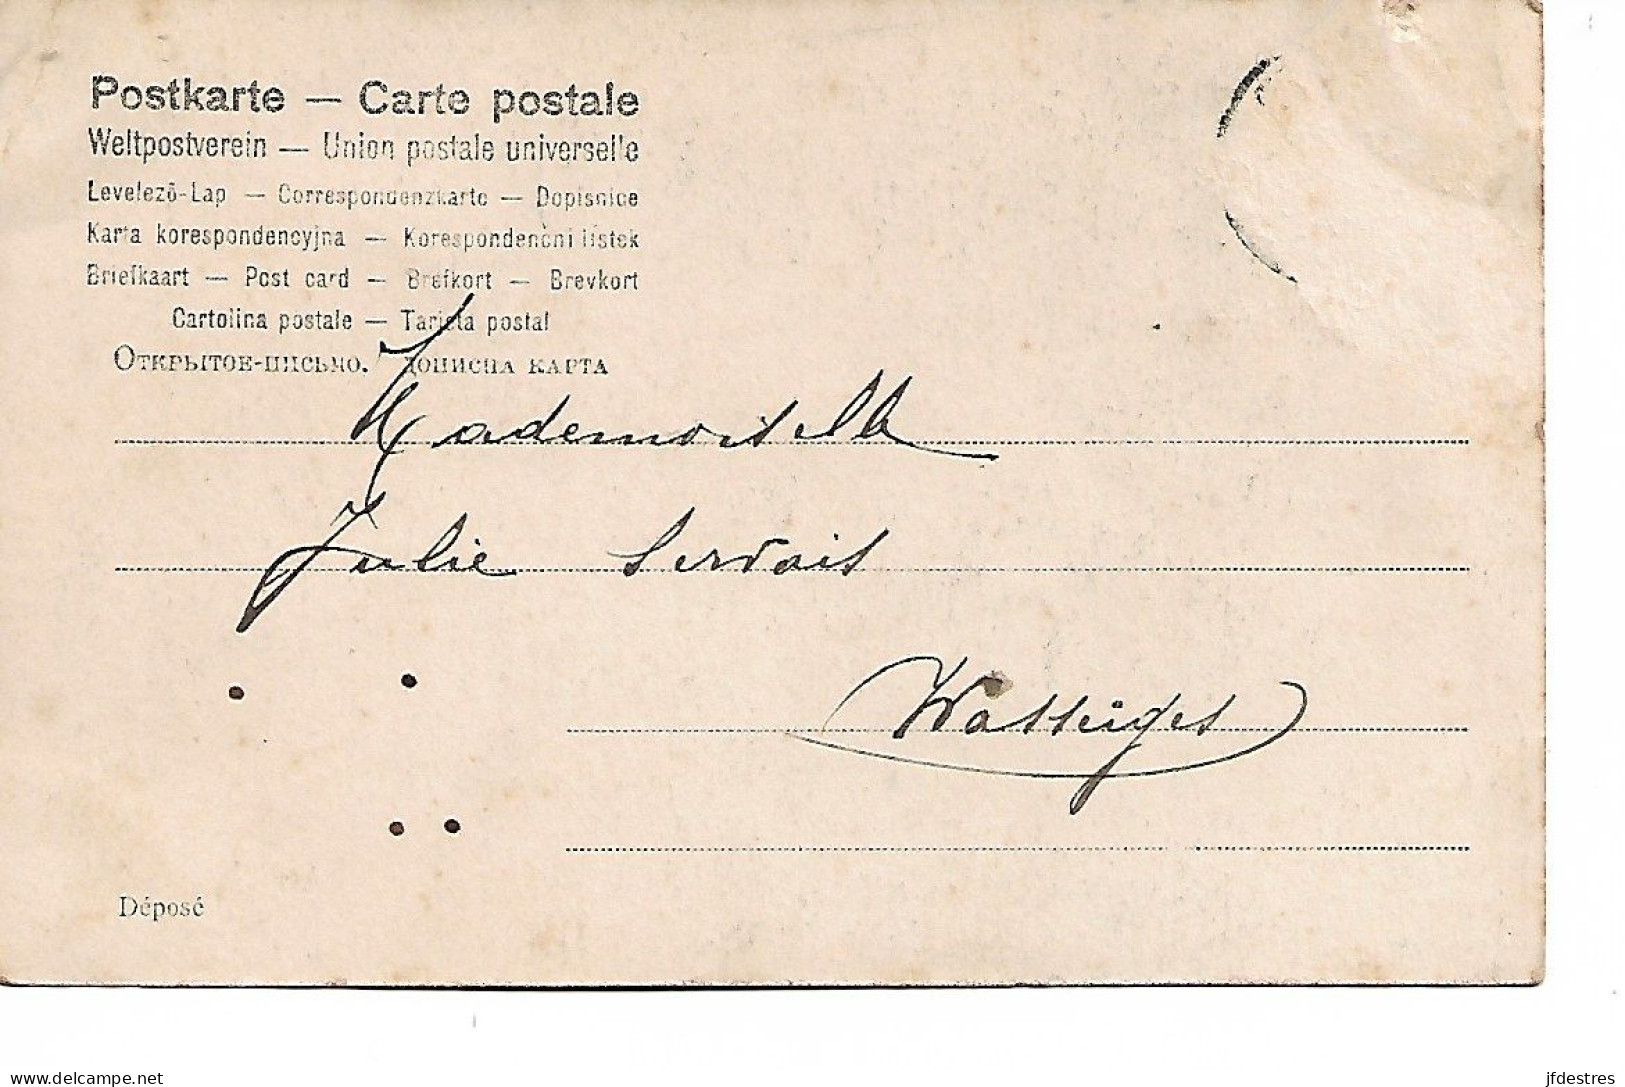 Postkarte — Carte postale
Weltpostverein — Union postale universelle
Levelező-Lap — Correspondenzkarte — Dopisnice
Karta korespondencyjna — Korespondenční lístek
Briefkaart — Post card — Brefkort — Brevkort
Cartolina postale — Tarjeta postal
Открытое-письмо. Дописна карта
Mademoiselle
Julie Servais
Wasseiges
Déposé
www.delcampe.net
jfdestres